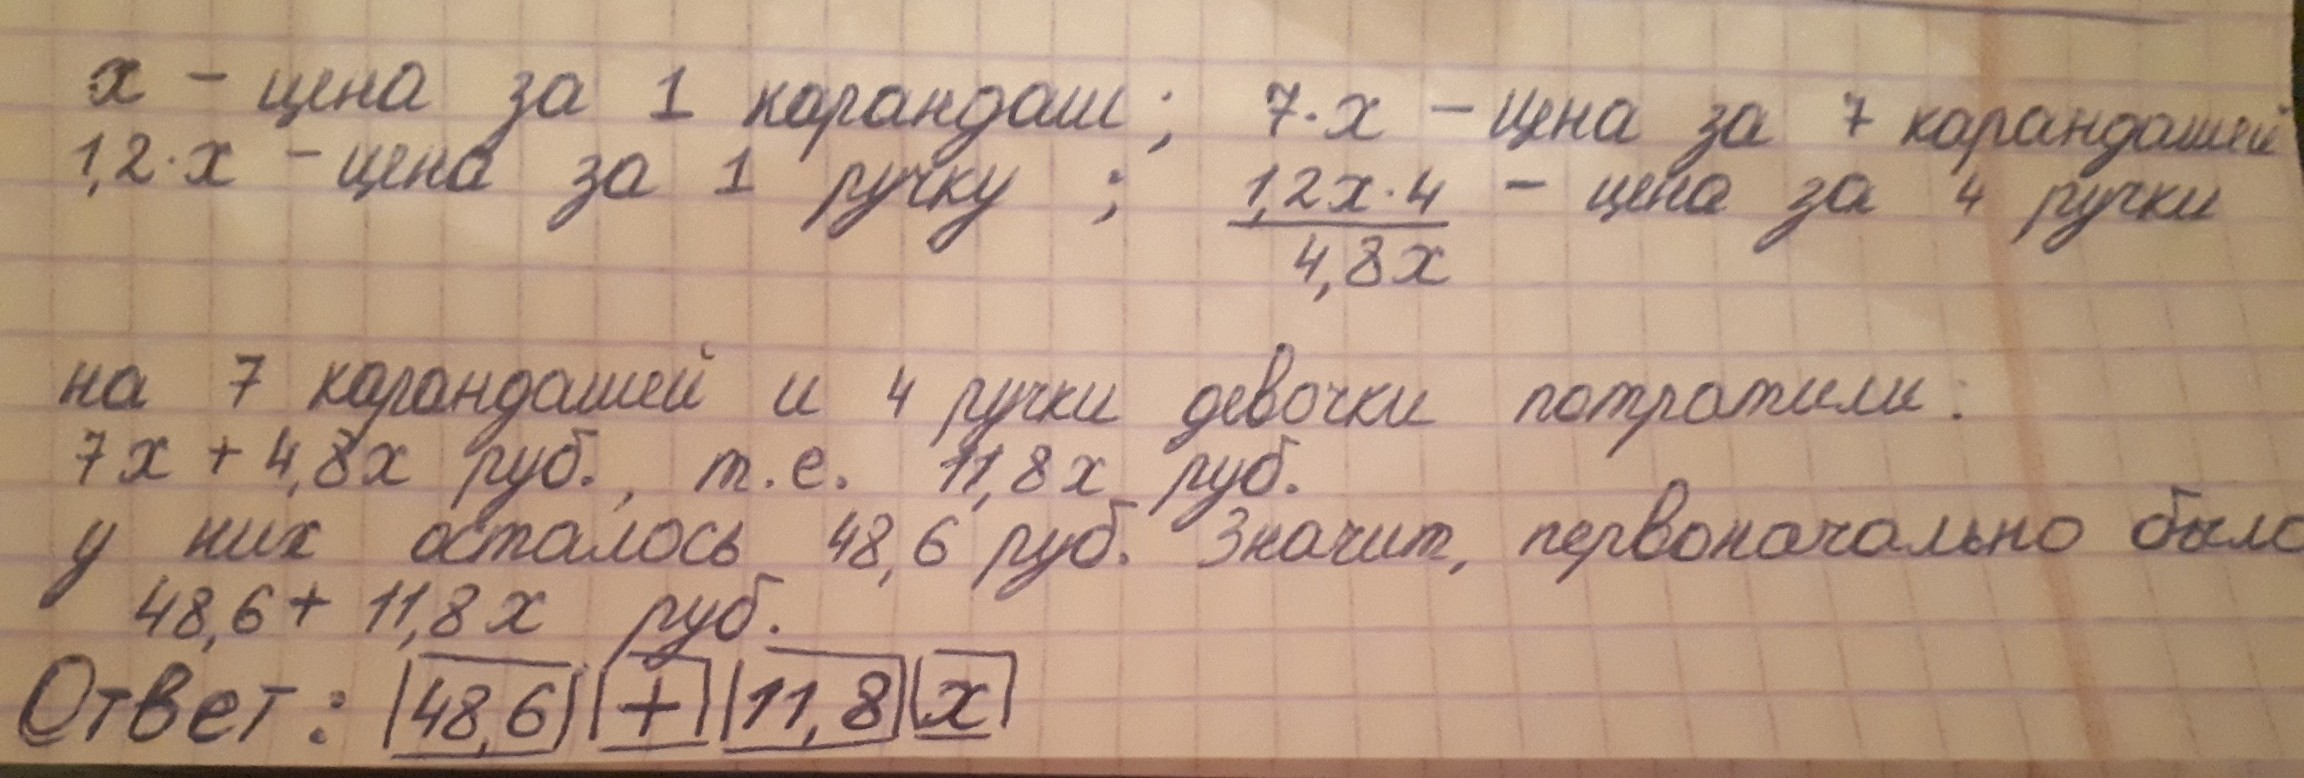 x - цена за 1 карандаш; 7·x - цена за 7 карандашей
1,2·x - цена за 1 ручку ; 1,2x·4 - цена за 4 ручки
4,8x
на 7 карандашей и 4 ручки девочки потратили:
7x + 4,8x руб., т.е. 11,8x руб.
у них осталось 48,6 руб. Значит, первоначально было
48,6 + 11,8x руб.
Ответ: 48,6 + 11,8 x